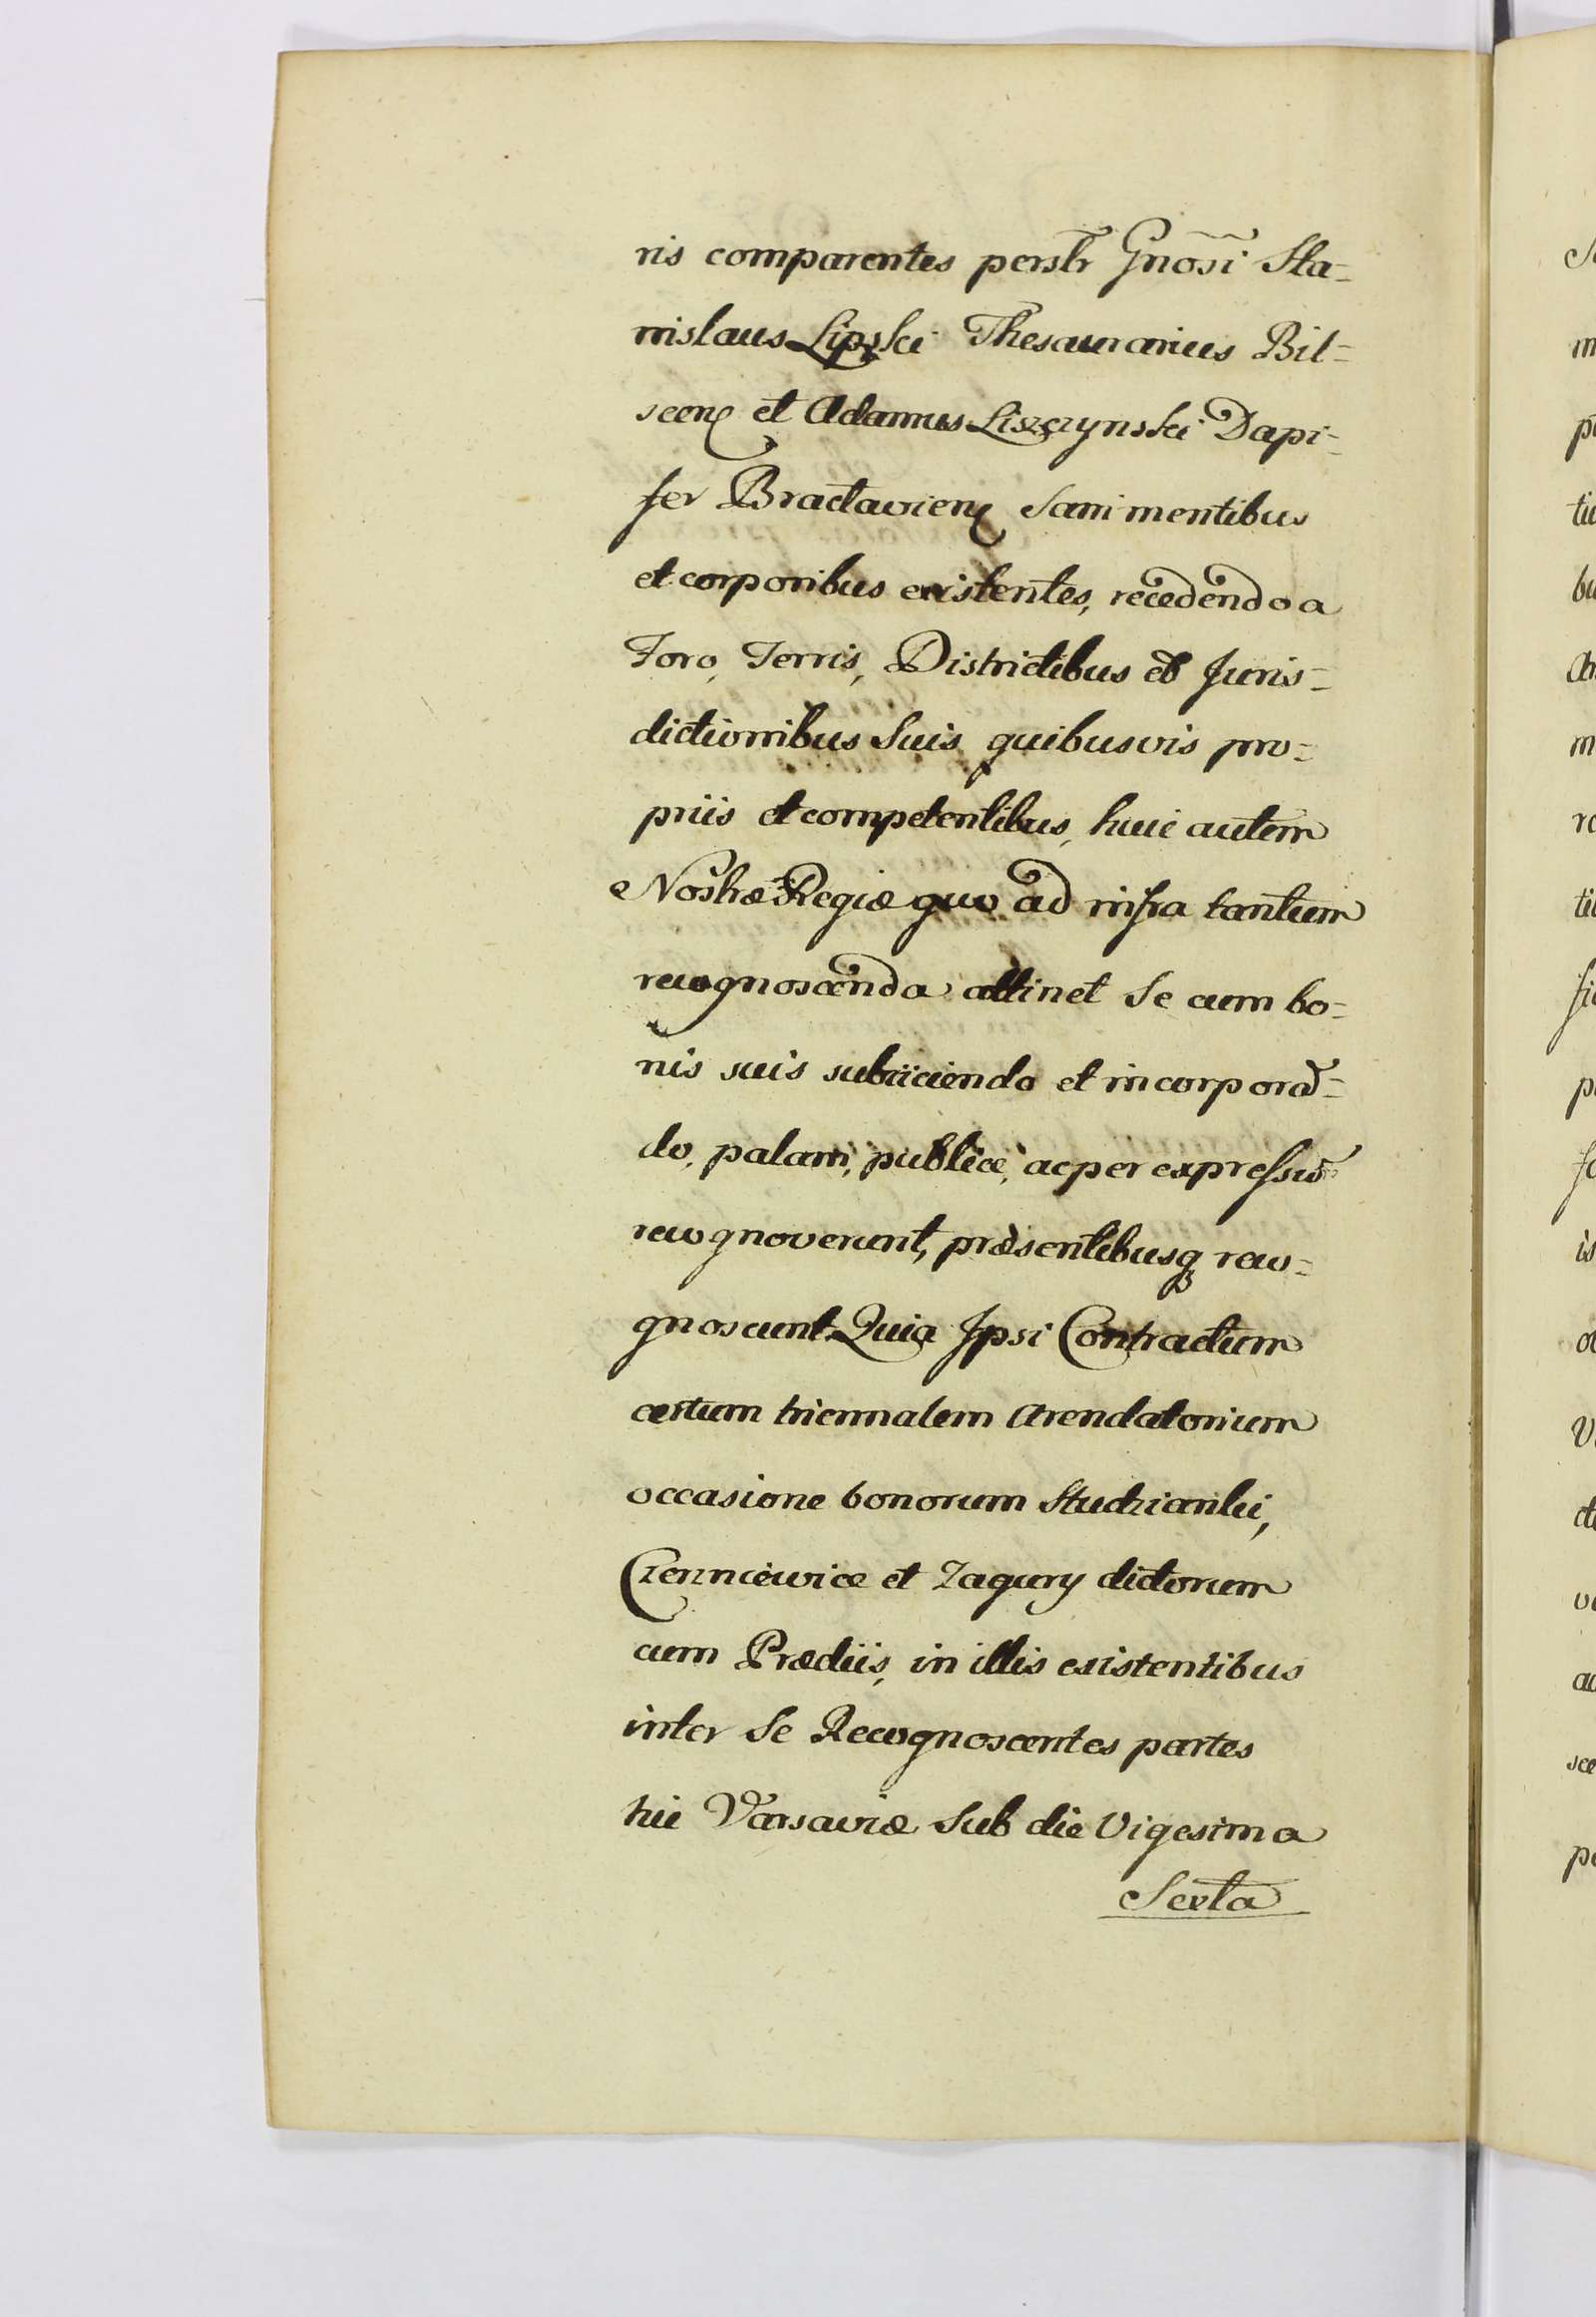 ris comparentes persłr Gnõsi Sta=
nislaus Lipski Thesaurarius Bil=
scen et Adamus Liszczynski Dapi=
fer Bractavien Sani mentibus
et corporibus existentes, recedendo a
Foro, Terris, Districtibus et Juris=
dictionibus Suis quibusvis pro=
priis et competentibus, huic autem
Nostræ Regiæ quo ad infra tantum
recognoscenda attinet Se cum bo=
nis suis subiiciendo et incorporā=
do, palam, publice, ac per expressū
recognoverunt, præsentibusq reco=
gnoscunt Quia Ipsi Contractum
certum triennalem Arendatorium
occasione bonorum Studzianki,
Czerniewice et Zagury dictorum
cum Prædiis, in illis existentibus
inter Se Recognoscentes partes
hic Varsaviæ Sub die Vigesima
Sexta